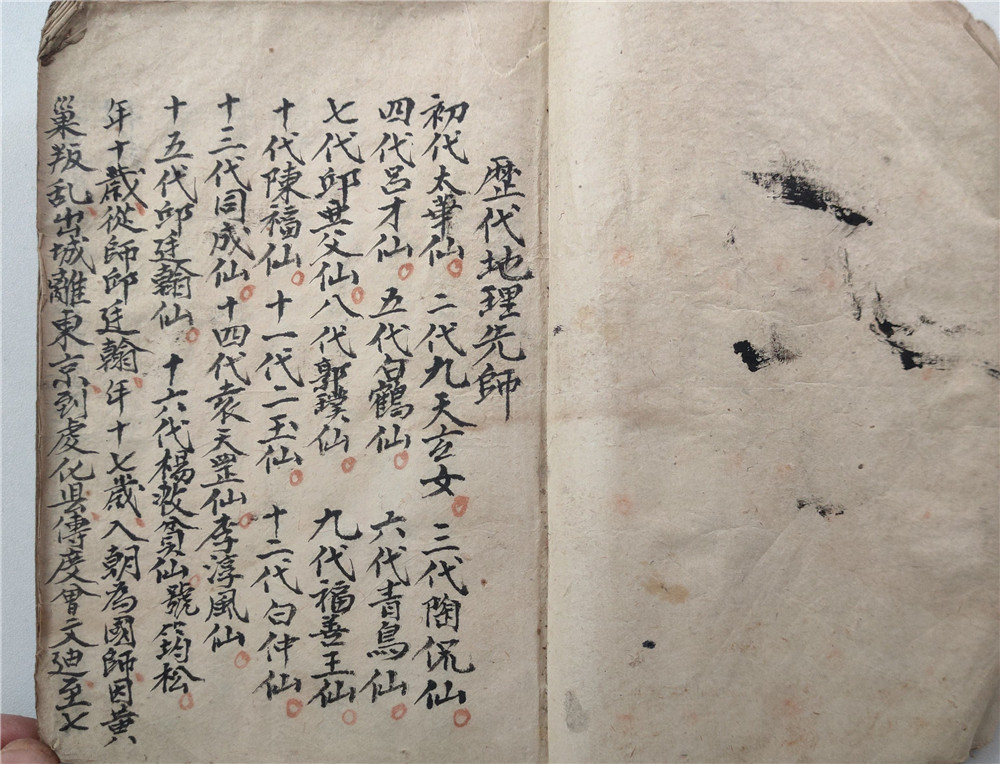 歷代地理先師
初代太華仙 二代九天玄女 三代陶侃仙
四代呂才仙 五代白鶴仙 六代青鳥仙
七代邱興父仙 八代郭璞仙 九代福善王仙
十代陳福仙 十一代二玉仙 十二代白仲仙
十三代同成仙 十四代袁天罡仙李淳風仙
十五代邱廷翰仙 十六代楊救貧仙號筠松
年十歲從師邱廷翰年十七歲入朝為國師因黃
巢叛乱出城離東京到虔化县傳度曾文迪至七